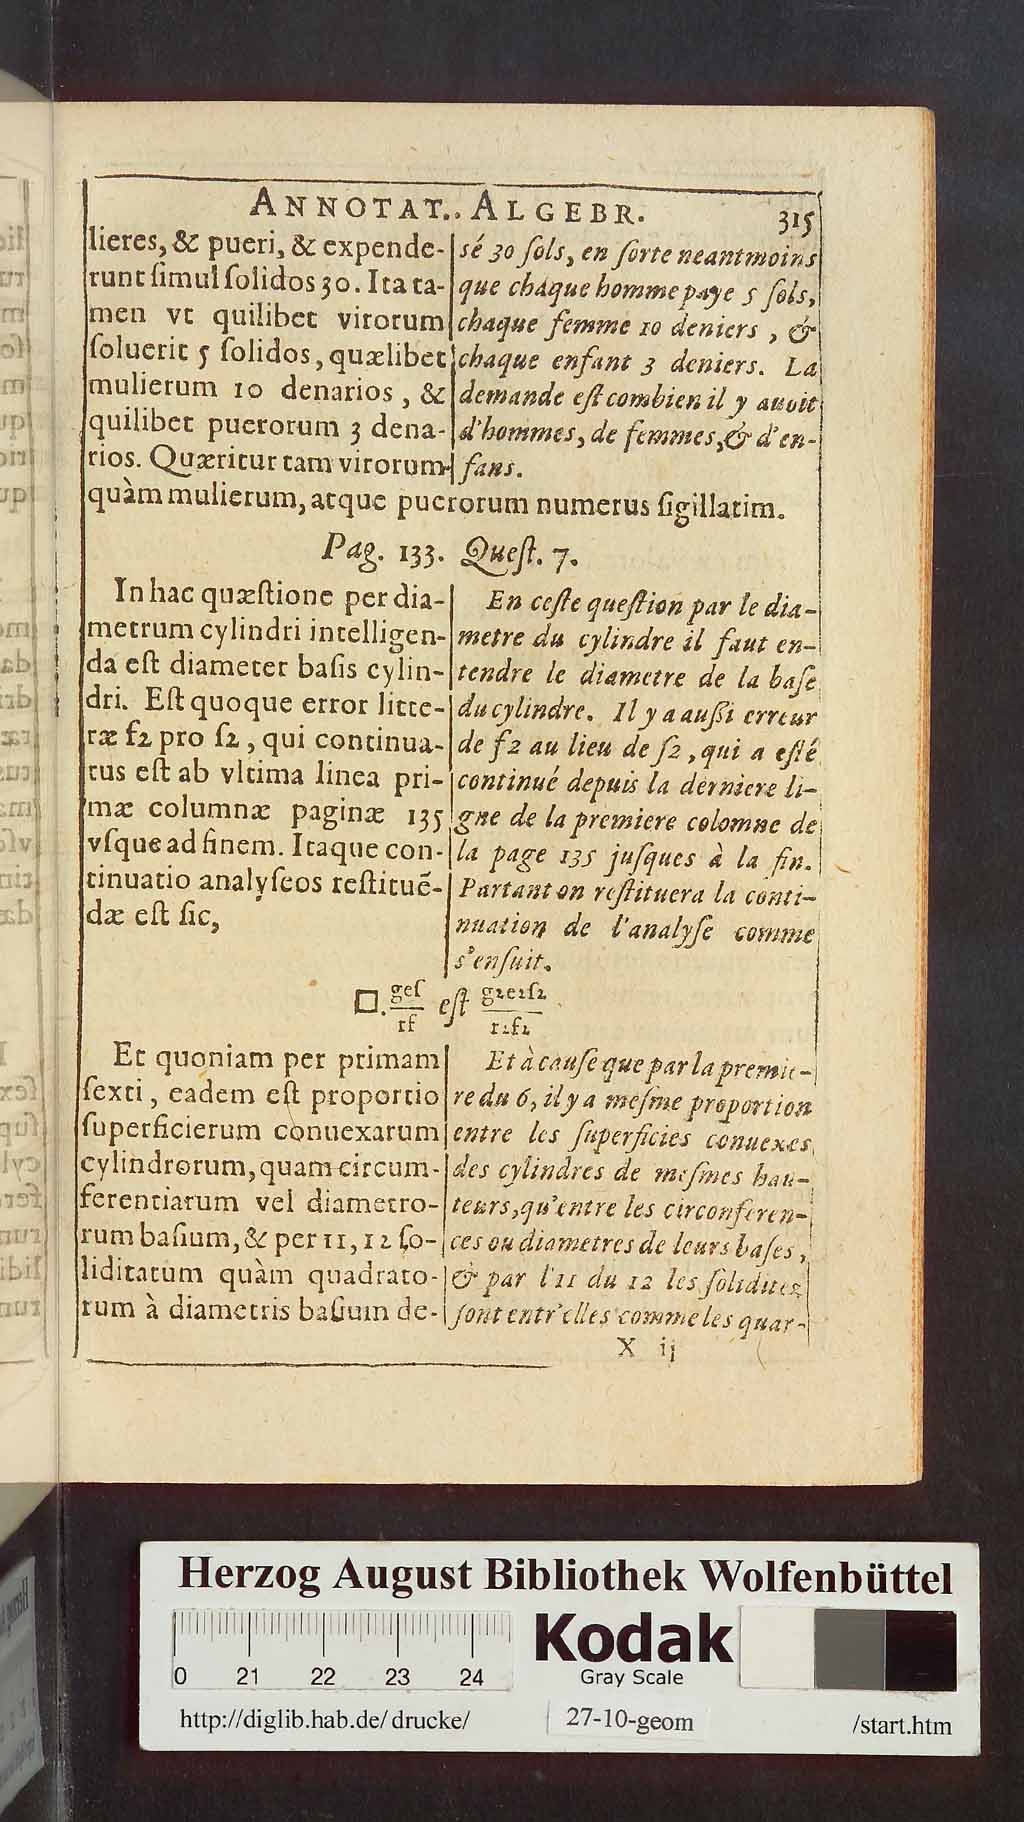 ANNOTAT.. ALGEBR. 315
lieres, & pueri, & expende-
runt ſimul ſolidos 30. Ita ta-
men vt quilibet virorum
ſoluerit 5 ſolidos, quælibet
mulierum 10 denarios, &
quilibet puerorum 3 dena-
rios. Quæritur tam virorum
quàm mulierum, atque puerorum numerus ſigillatim.
sé 30 ſols, en ſorte neantmoins
que chaque homme paye 5 ſols,
chaque femme 10 deniers, &
chaque enfant 3 deniers. La
demande eſt combien il y auoit
d'hommes, de femmes, & d'en-
fans.
Pag. 133. Queſt. 7.
In hac quæſtione per dia-
metrum cylindri intelligen-
da eſt diameter baſis cylin-
dri. Eſt quoque error litte-
ræ f2 pro ſ2, qui continua-
tus eſt ab vltima linea pri-
mæ columnæ paginæ 135
vſque ad finem. Itaque con-
tinuatio analyſeos reſtituē-
dæ eſt ſic,
En ceſte queſtion par le dia-
metre du cylindre il faut en-
tendre le diametre de la baſe
du cylindre. Il y a außi erreur
de f2 au lieu de ſ2, qui a eſté
continué depuis la derniere li-
gne de la premiere colomne de
la page 135 juſques à la fin.
Partant on reſtituera la conti-
nuation de l'analyſe comme
s'enſuit.
□. geſ/rf eſt g2e2ſ2/r2f2
Et quoniam per primam
ſexti, eadem eſt proportio
ſuperficierum conuexarum
cylindrorum, quam circum-
ferentiarum vel diametro-
rum baſium, & per 11, 12 ſo-
liditatum quàm quadrato-
rum à diametris baſium de-
Et à cauſe que par la premie-
re du 6, il y a meſme proportion
entre les ſuperficies conuexes
des cylindres de meſmes hau-
teurs, qu'entre les circonferen-
ces ou diametres de leurs baſes,
& par l'11 du 12 les ſolidites
ſont entr'elles comme les quar-
X ij
Herzog August Bibliothek Wolfenbüttel
0 21 22 23 24
Kodak
Gray Scale
http://diglib.hab.de/drucke/ 27-10-geom /start.htm